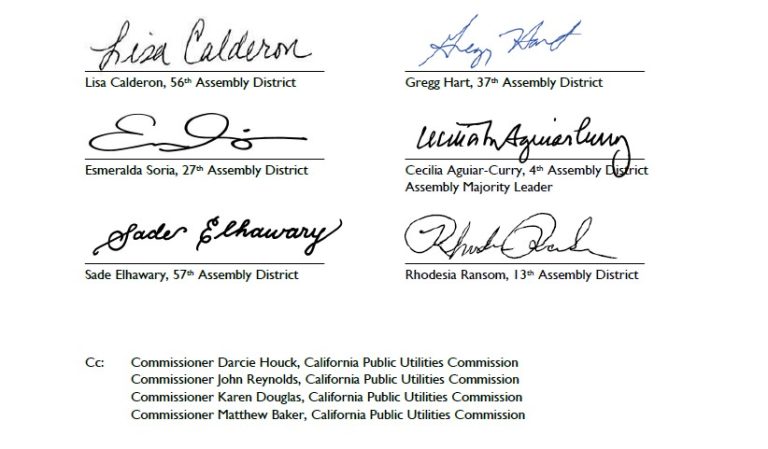 Lisa Calderon Gregg Hart
Lisa Calderon, 56th Assembly District Gregg Hart, 37th Assembly District
Cecilia M Aguiar-Curry
Esmeralda Soria, 27th Assembly District Cecilia Aguiar-Curry, 4th Assembly District
Assembly Majority Leader
Sade Elhawary
Sade Elhawary, 57th Assembly District Rhodesia Ransom, 13th Assembly District
Cc: Commissioner Darcie Houck, California Public Utilities Commission
Commissioner John Reynolds, California Public Utilities Commission
Commissioner Karen Douglas, California Public Utilities Commission
Commissioner Matthew Baker, California Public Utilities Commission